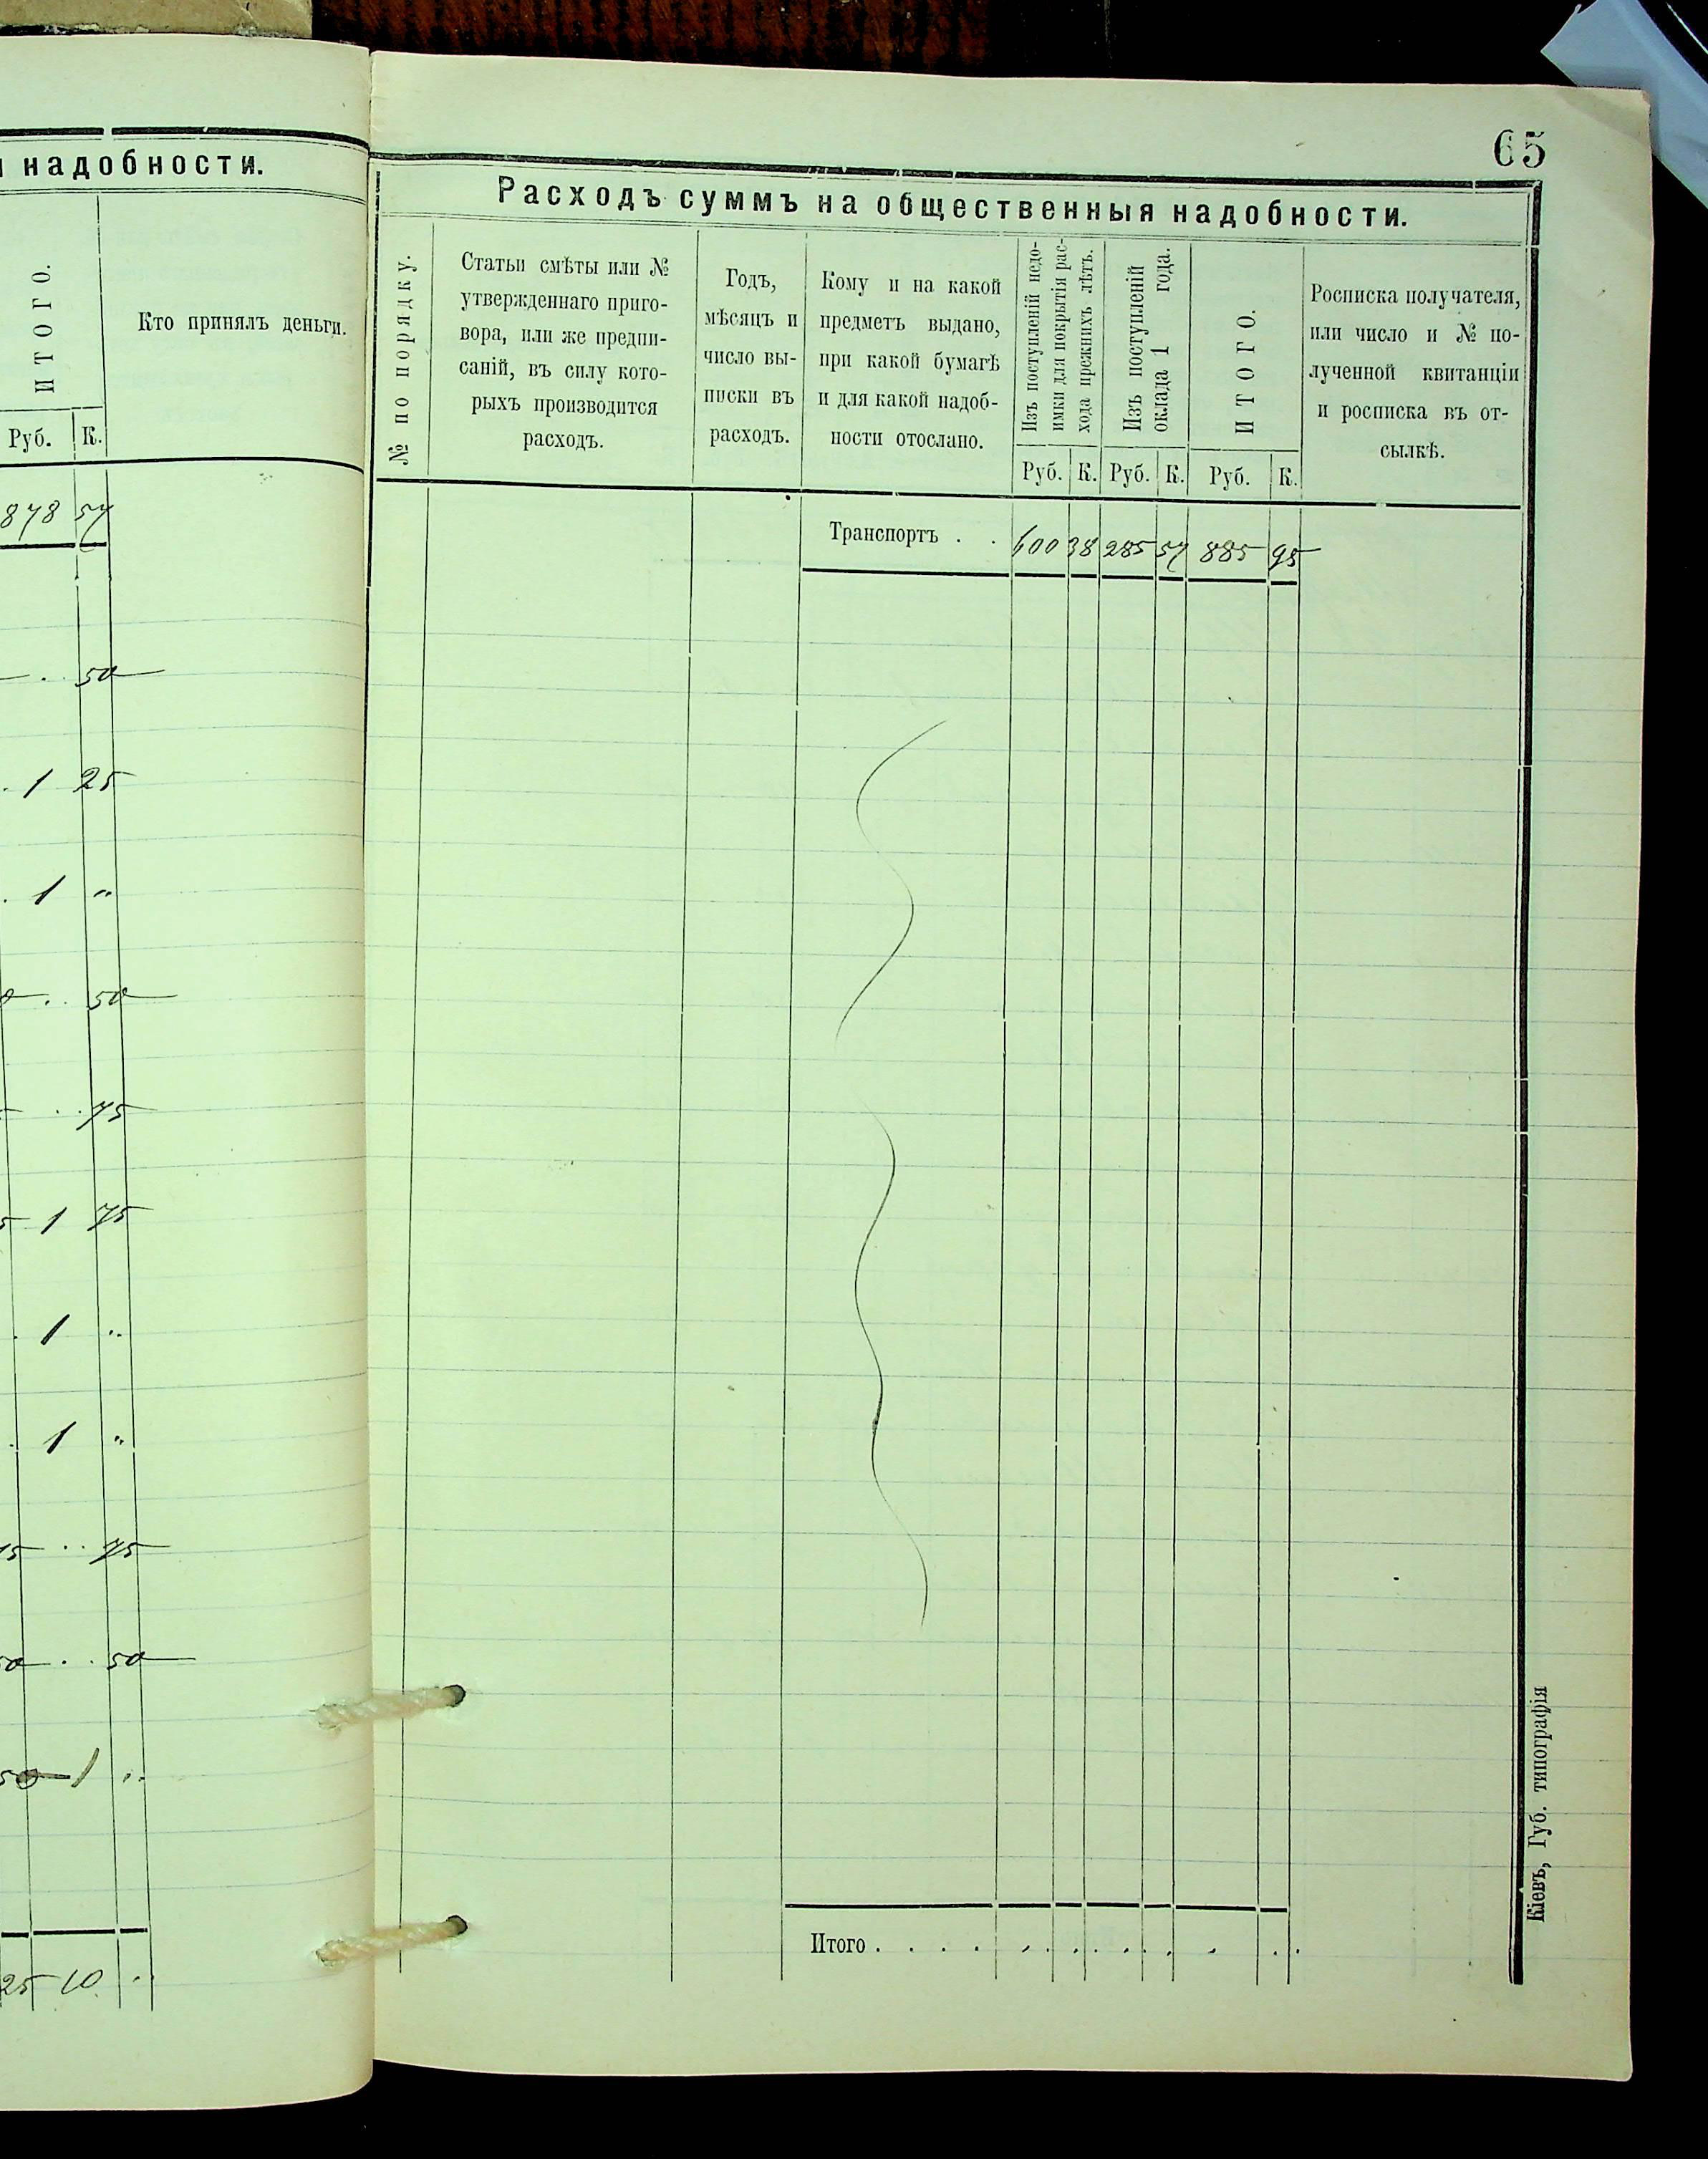 надобности.
ИТОГО.
Кто принялъ деньги.
Руб. К.
878 57
50
1 25
1 "
50
75
1 75
1 "
1 "
75
50 50
50 1 "
25 10 "
65
Расходъ суммъ на общественныя надобности.
№ по порядку.
Статьи смѣты или №
утвержденнаго приго-
вора, или же предпи-
саній, въ силу кото-
рыхъ производится
расходъ.
Годъ,
мѣсяцъ и
число вы-
писки въ
расходъ.
Кому и на какой
предметъ выдано,
при какой бумагѣ
и для какой надоб-
ности отослано.
Изъ поступленій недо-
имки для покрытія рас-
хода прежнихъ лѣтъ.
Изъ поступленій
оклада 1 года.
ИТОГО.
Росписка получателя,
или число и № по-
лученной квитанціи
и росписка въ от-
сылкѣ.
Руб. К. Руб. К. Руб. К.
Транспортъ . . 600 38 285 57 885 95
Итого . . . .
Кіевъ, Губ. типографія